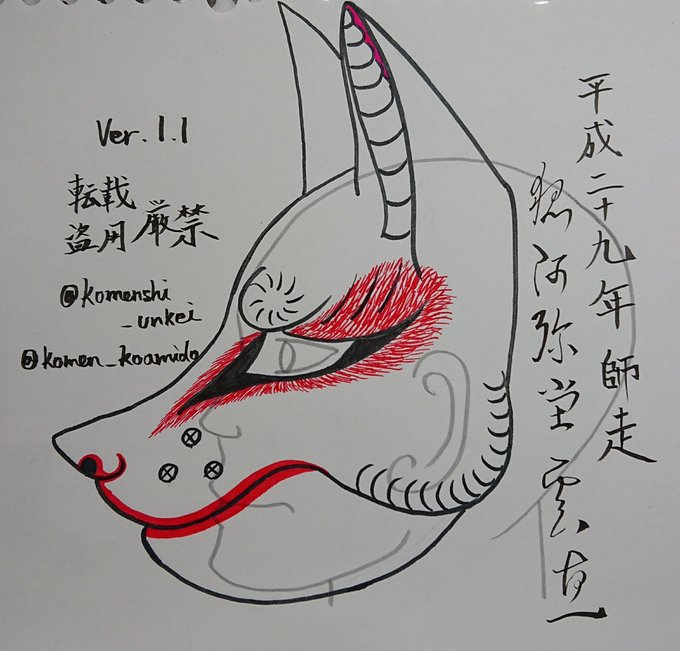 Ver.1.1
転載
盗用
厳禁
@komenshi
_unkei
@komen_koamido
平成二十九年 師走
狐阿弥堂 雲